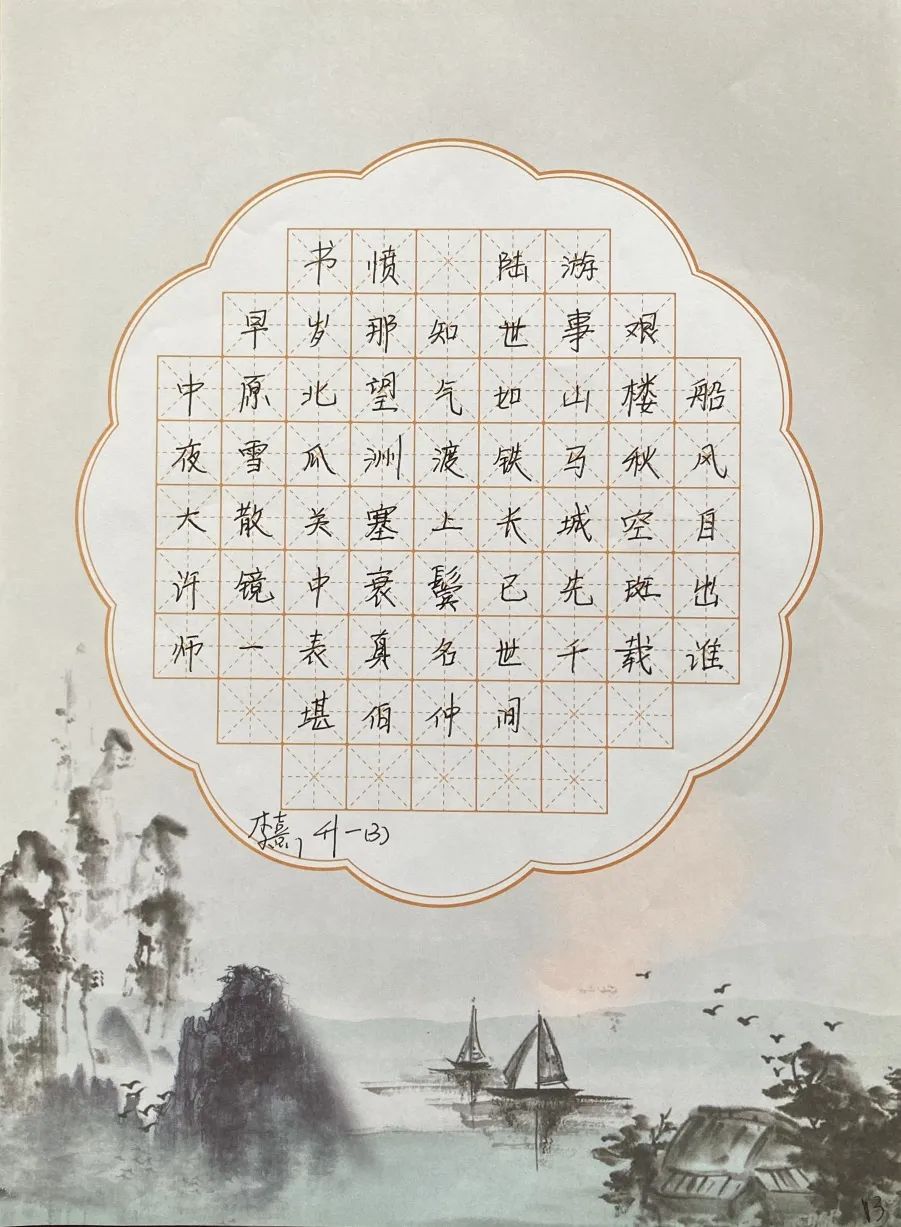 书愤 陆游
早岁那知世事艰
中原北望气如山楼船
夜雪瓜洲渡铁马秋风
大散关塞上长城空自
许镜中衰鬓已先斑出
师一表真名世千载谁
堪伯仲间
李熹,升一(3)
13